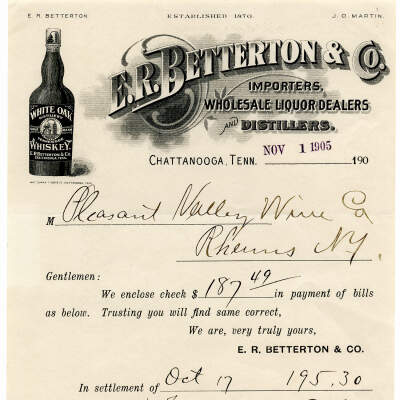 E. R. BETTERTON ESTABLISHED 1870. J. O. MARTIN.
E. R. BETTERTON & Co.
IMPORTERS,
WHOLESALE LIQUOR DEALERS
AND DISTILLERS.
WHITE OAK
WHISKEY
E. R. BETTERTON & CO.
CHATTANOOGA, TENN.
CHATTANOOGA, TENN. NOV 1 1905 190
M Pleasant Valley Wine Co
Rheims N.Y.
Gentlemen:
We enclose check $ 187 49 in payment of bills
as below. Trusting you will find same correct,
We are, very truly yours,
E. R. BETTERTON & CO.
In settlement of Oct 17 195.30